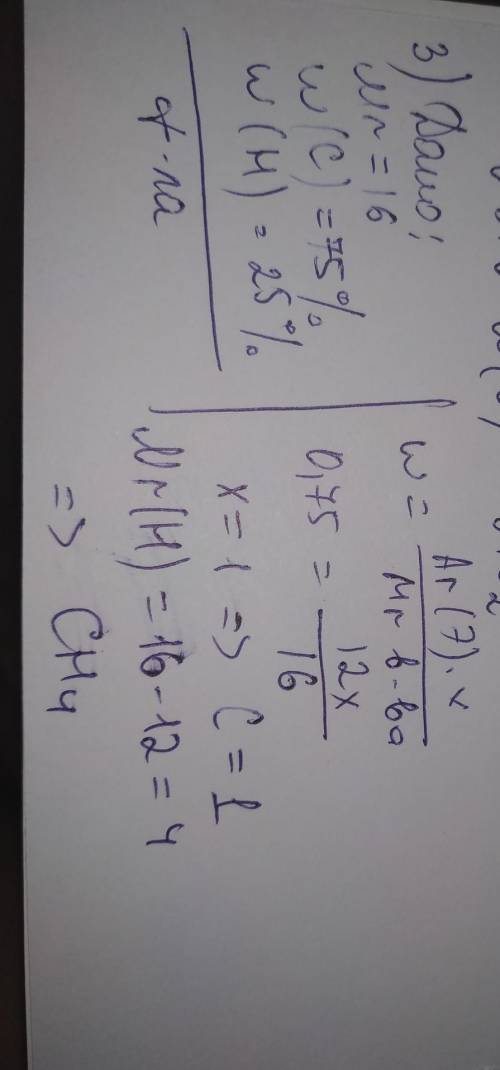 3) Дано:
Mr = 16
w(C) = 75%
w(H) = 25%
ф-ла
w = Ar(Э)·x / Mr в-ва
0,75 = 12x / 16
x = 1 => C = 1
Mr(H) = 16-12 = 4
=> CH4